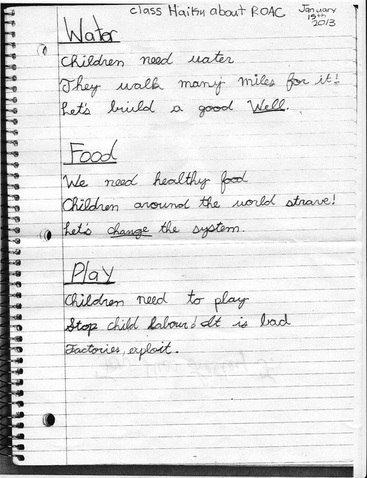 Class Haiku about ROAC
January
15th
2013
Water
Children need water
They walk many miles for it!
Let's build a good Well.
Food
We need healthy food
Children around the world strave!
Let's change the system.
Play
Children need to play
Stop child labour! It is bad
Factories exploit.